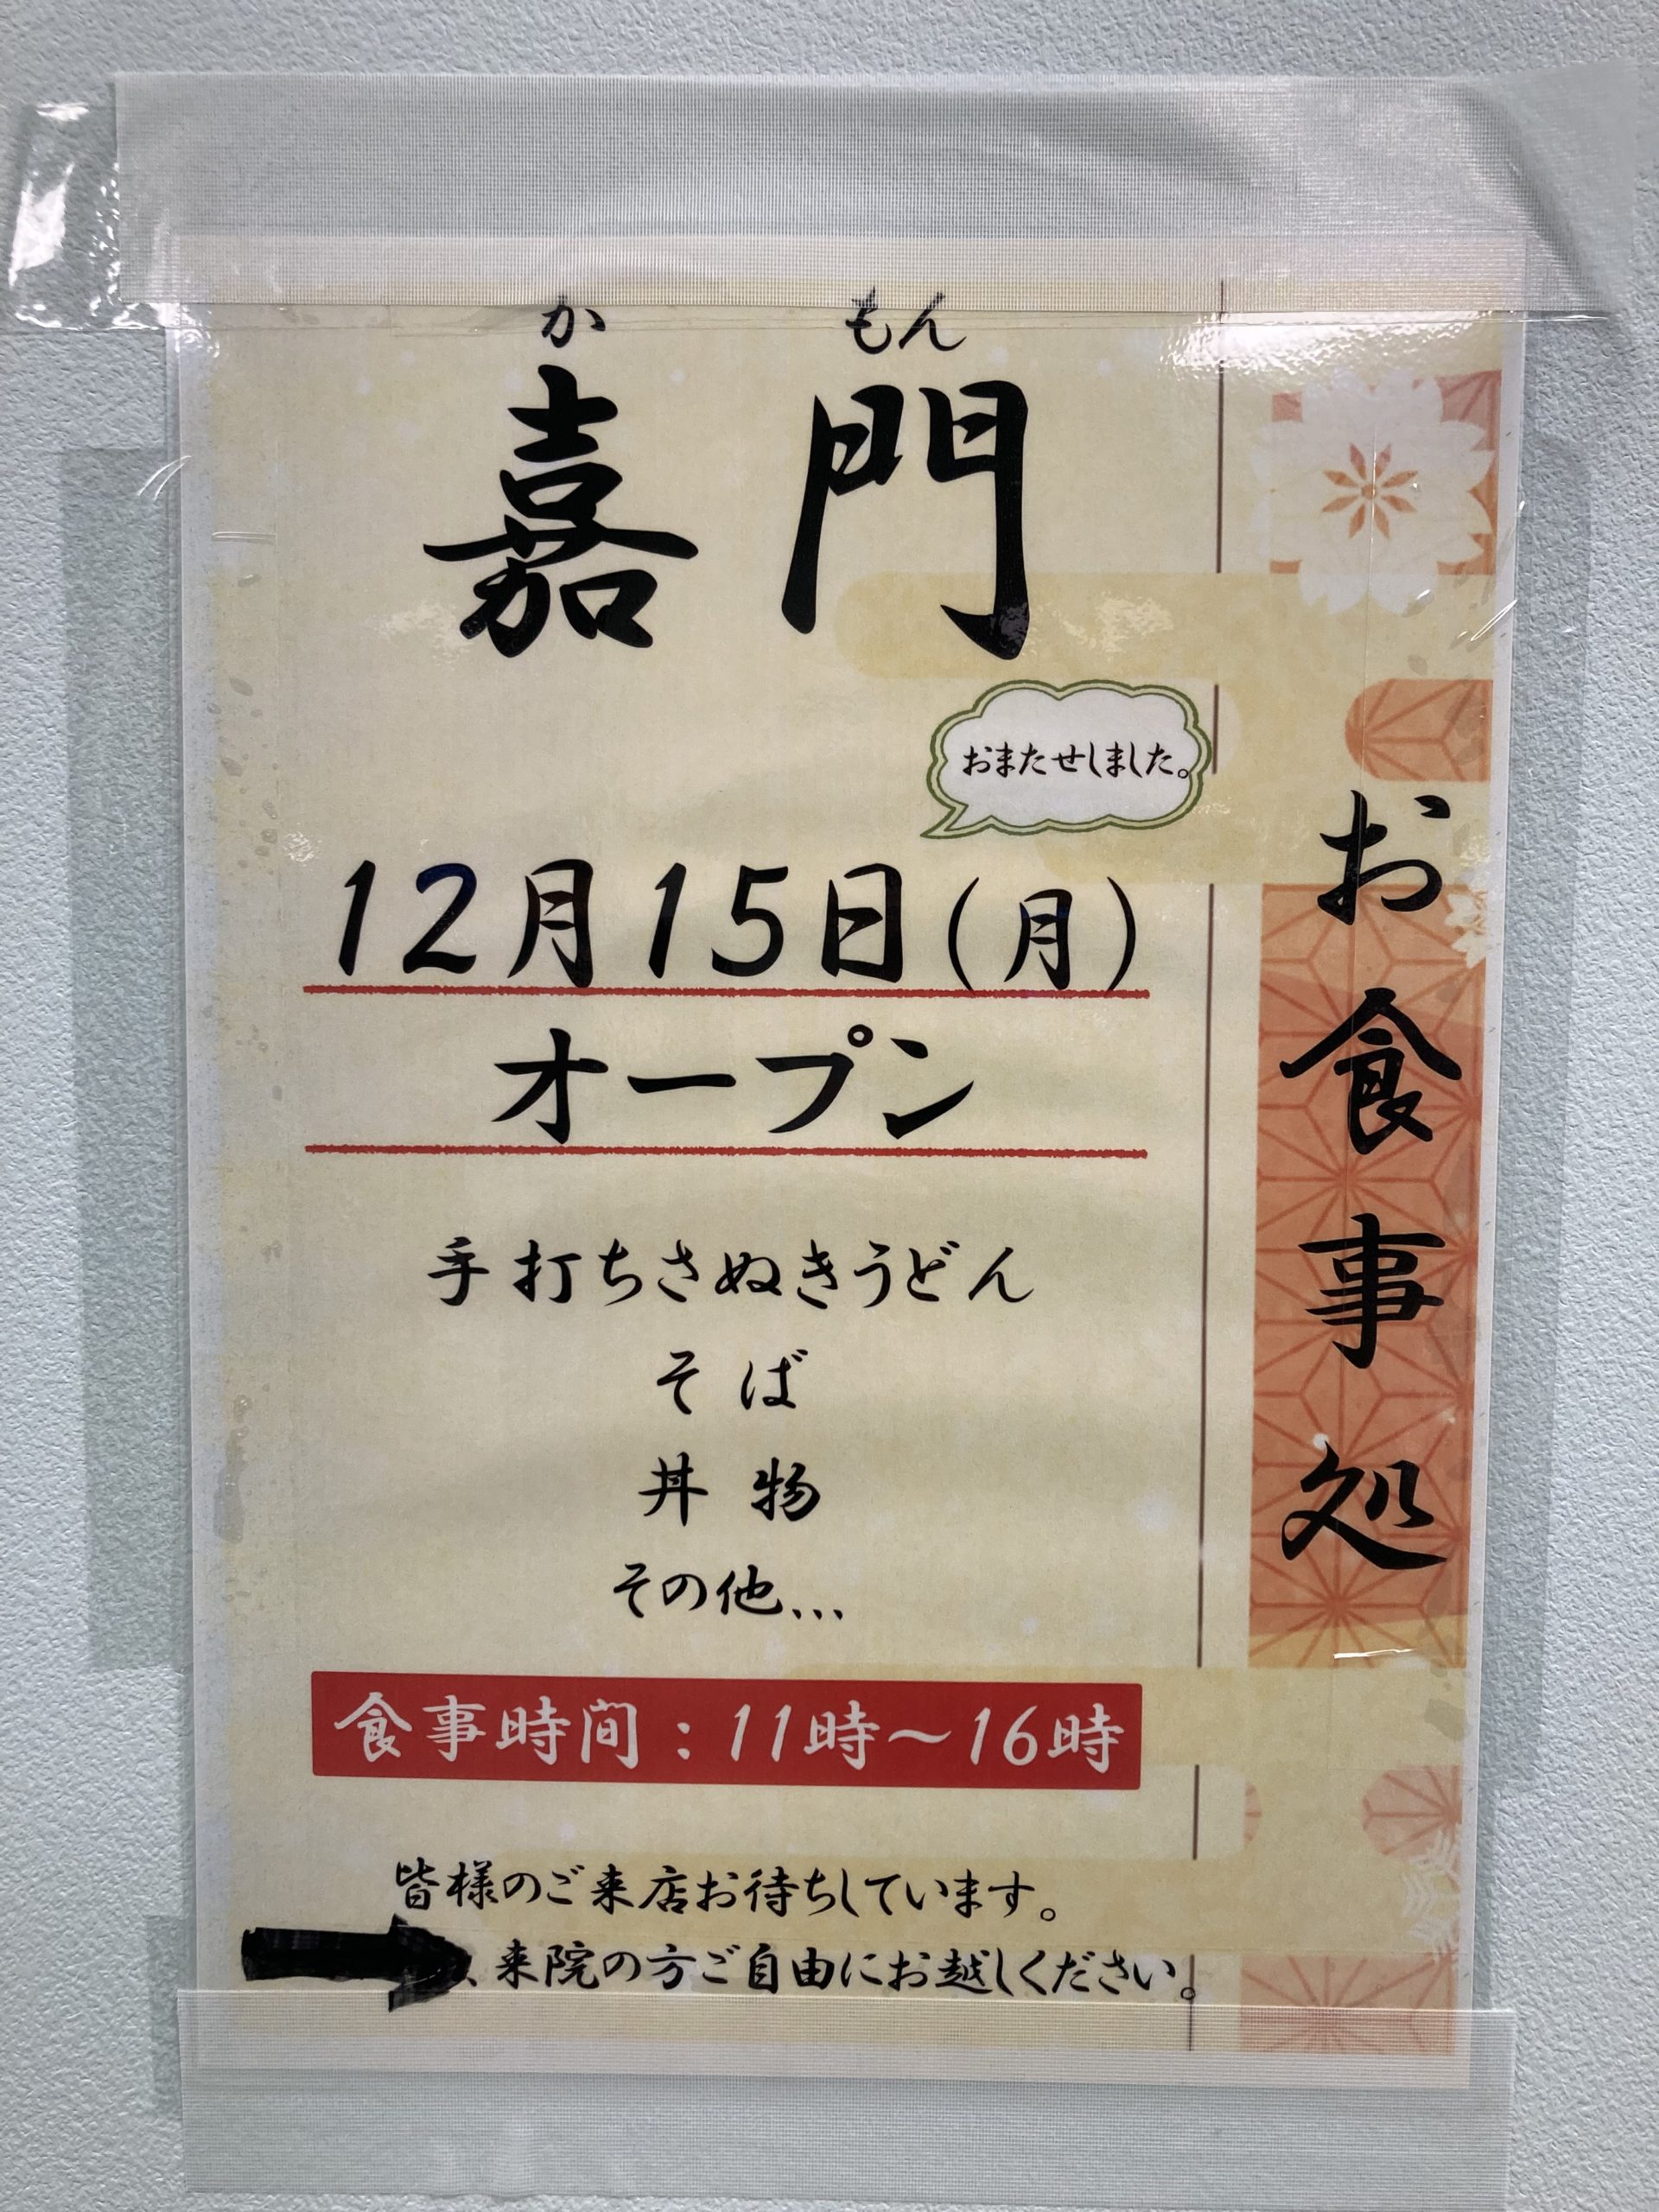 か もん
嘉門
おまたせしました。
12月15日(月)
オープン
手打ちさぬきうどん
そば
丼物
その他...
食事時間：11時～16時
皆様のご来店お待ちしています。
、来院の方ご自由にお越しください。
お食事処